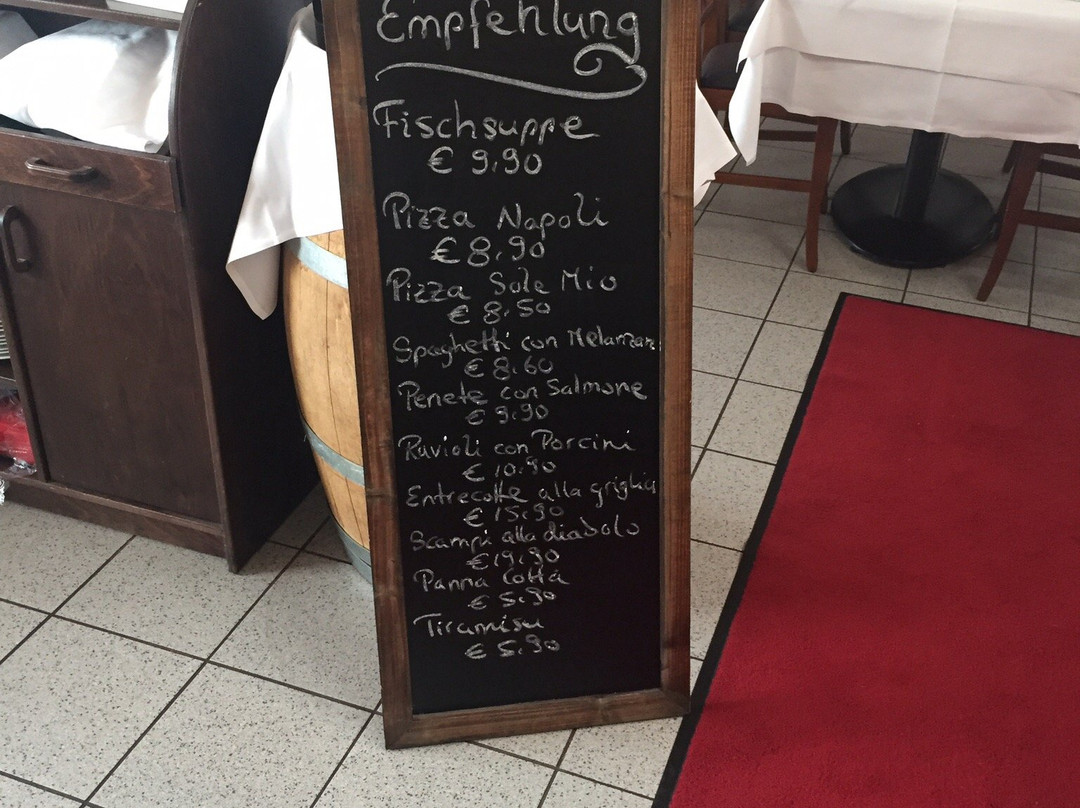 Empfehlung
Fischsuppe
€ 9,90
Pizza Napoli
€ 8,90
Pizza Sole Mio
€ 8,50
Spaghetti con Melanzan
€ 8,60
Penete con Salmone
€ 9,90
Ravioli con Porcini
€ 10,90
Entrecotte alla griglia
€ 15,90
Scampi alla diabolo
€ 19,90
Panna Cotta
€ 5,90
Tiramisu
€ 5,90